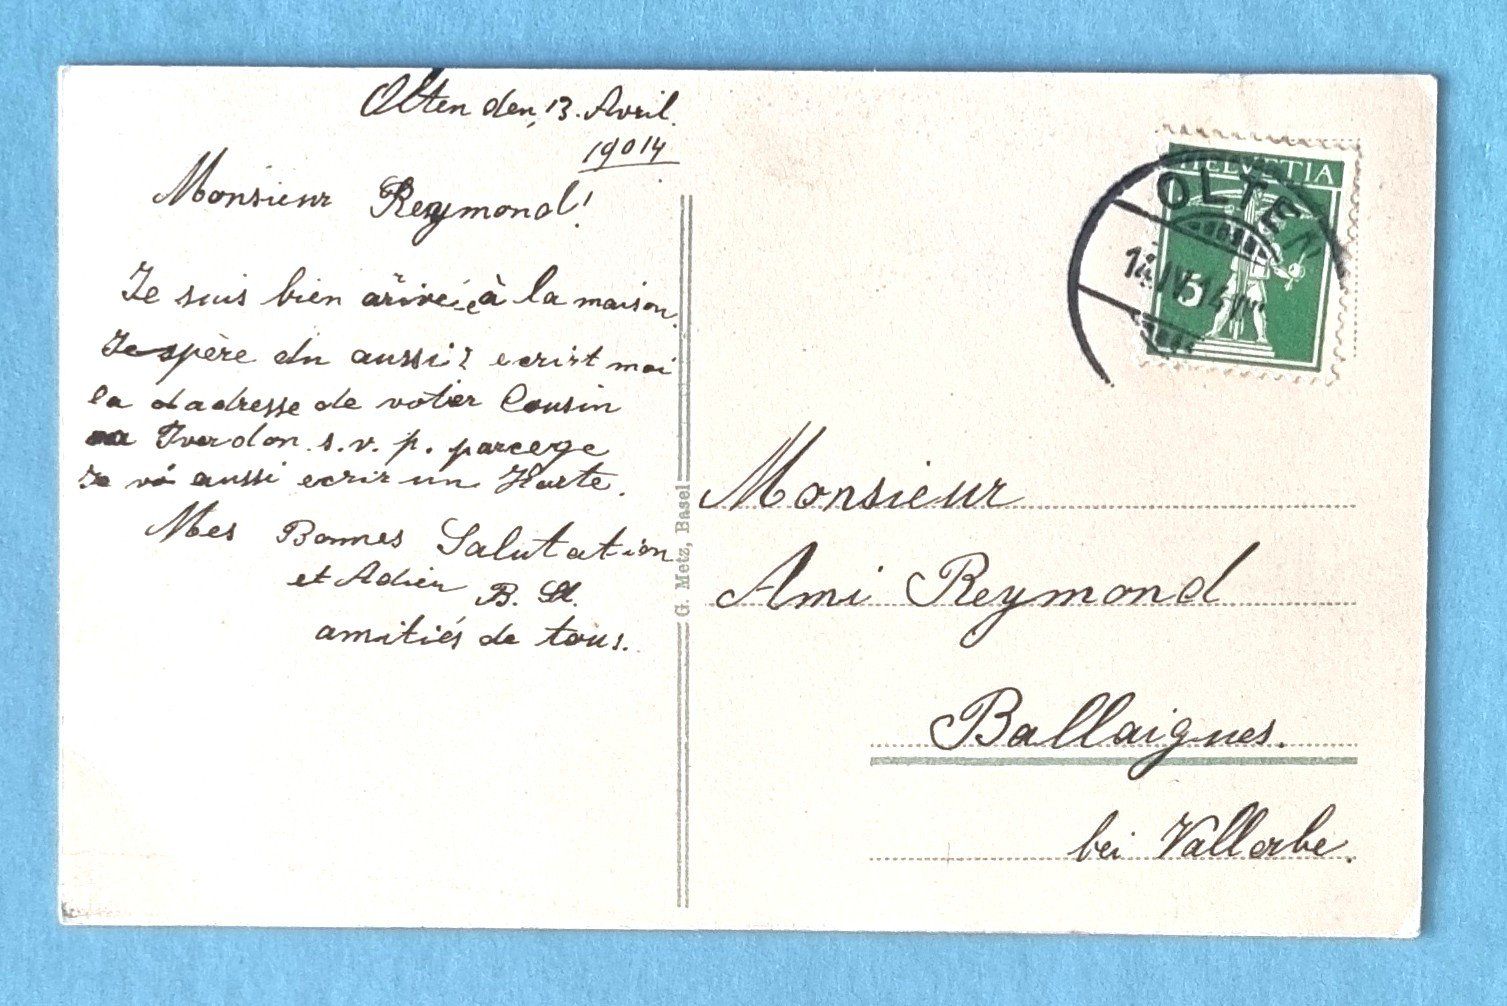 Olten den, 13. Avril.
19014
Monsieur Reymond!
Je suis bien arivée à la maison.
Jespère du aussi? ecrist moi
la dadresse de votier Cousin
Iverdon s.v.p. parcege
Je vá aussi ecrir un Karte.
Mes Bonnes Salutation
et Adieu B. St.
amitiés de tous.
G. Metz, Basel
HELVETIA
5
OLTEN
14.IV.14
Monsieur
Ami Reymond
Ballaigues.
bei Vallorbe.